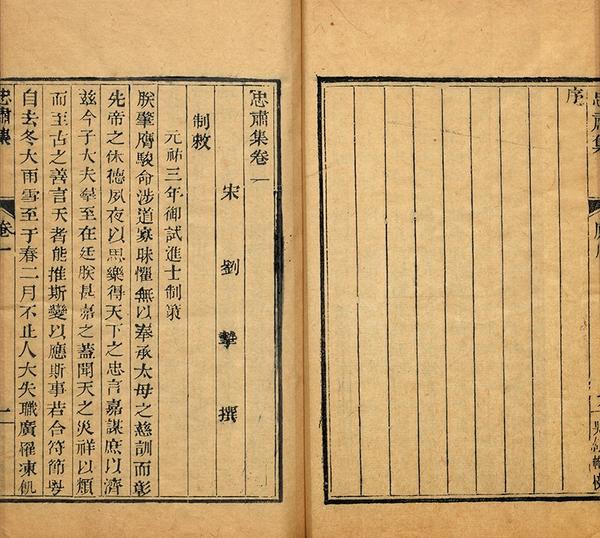 序
忠肅集卷一
宋 劉 摯 撰
制敕
元祐三年御試進士制策
朕肇膺駿命涉道寡昧懼無以奉承太母之慈訓而彰
先帝之休德夙夜以思樂得天下之忠言嘉謀庶以濟
茲今子大夫羣至在廷朕甚嘉之蓋聞天之災祥以類
而至古之善言天者能推斯變以應斯事若合符節粤
自去冬大雨雪至于春二月不止人大失職廣罹凍飢
忠肅集
卷一
一